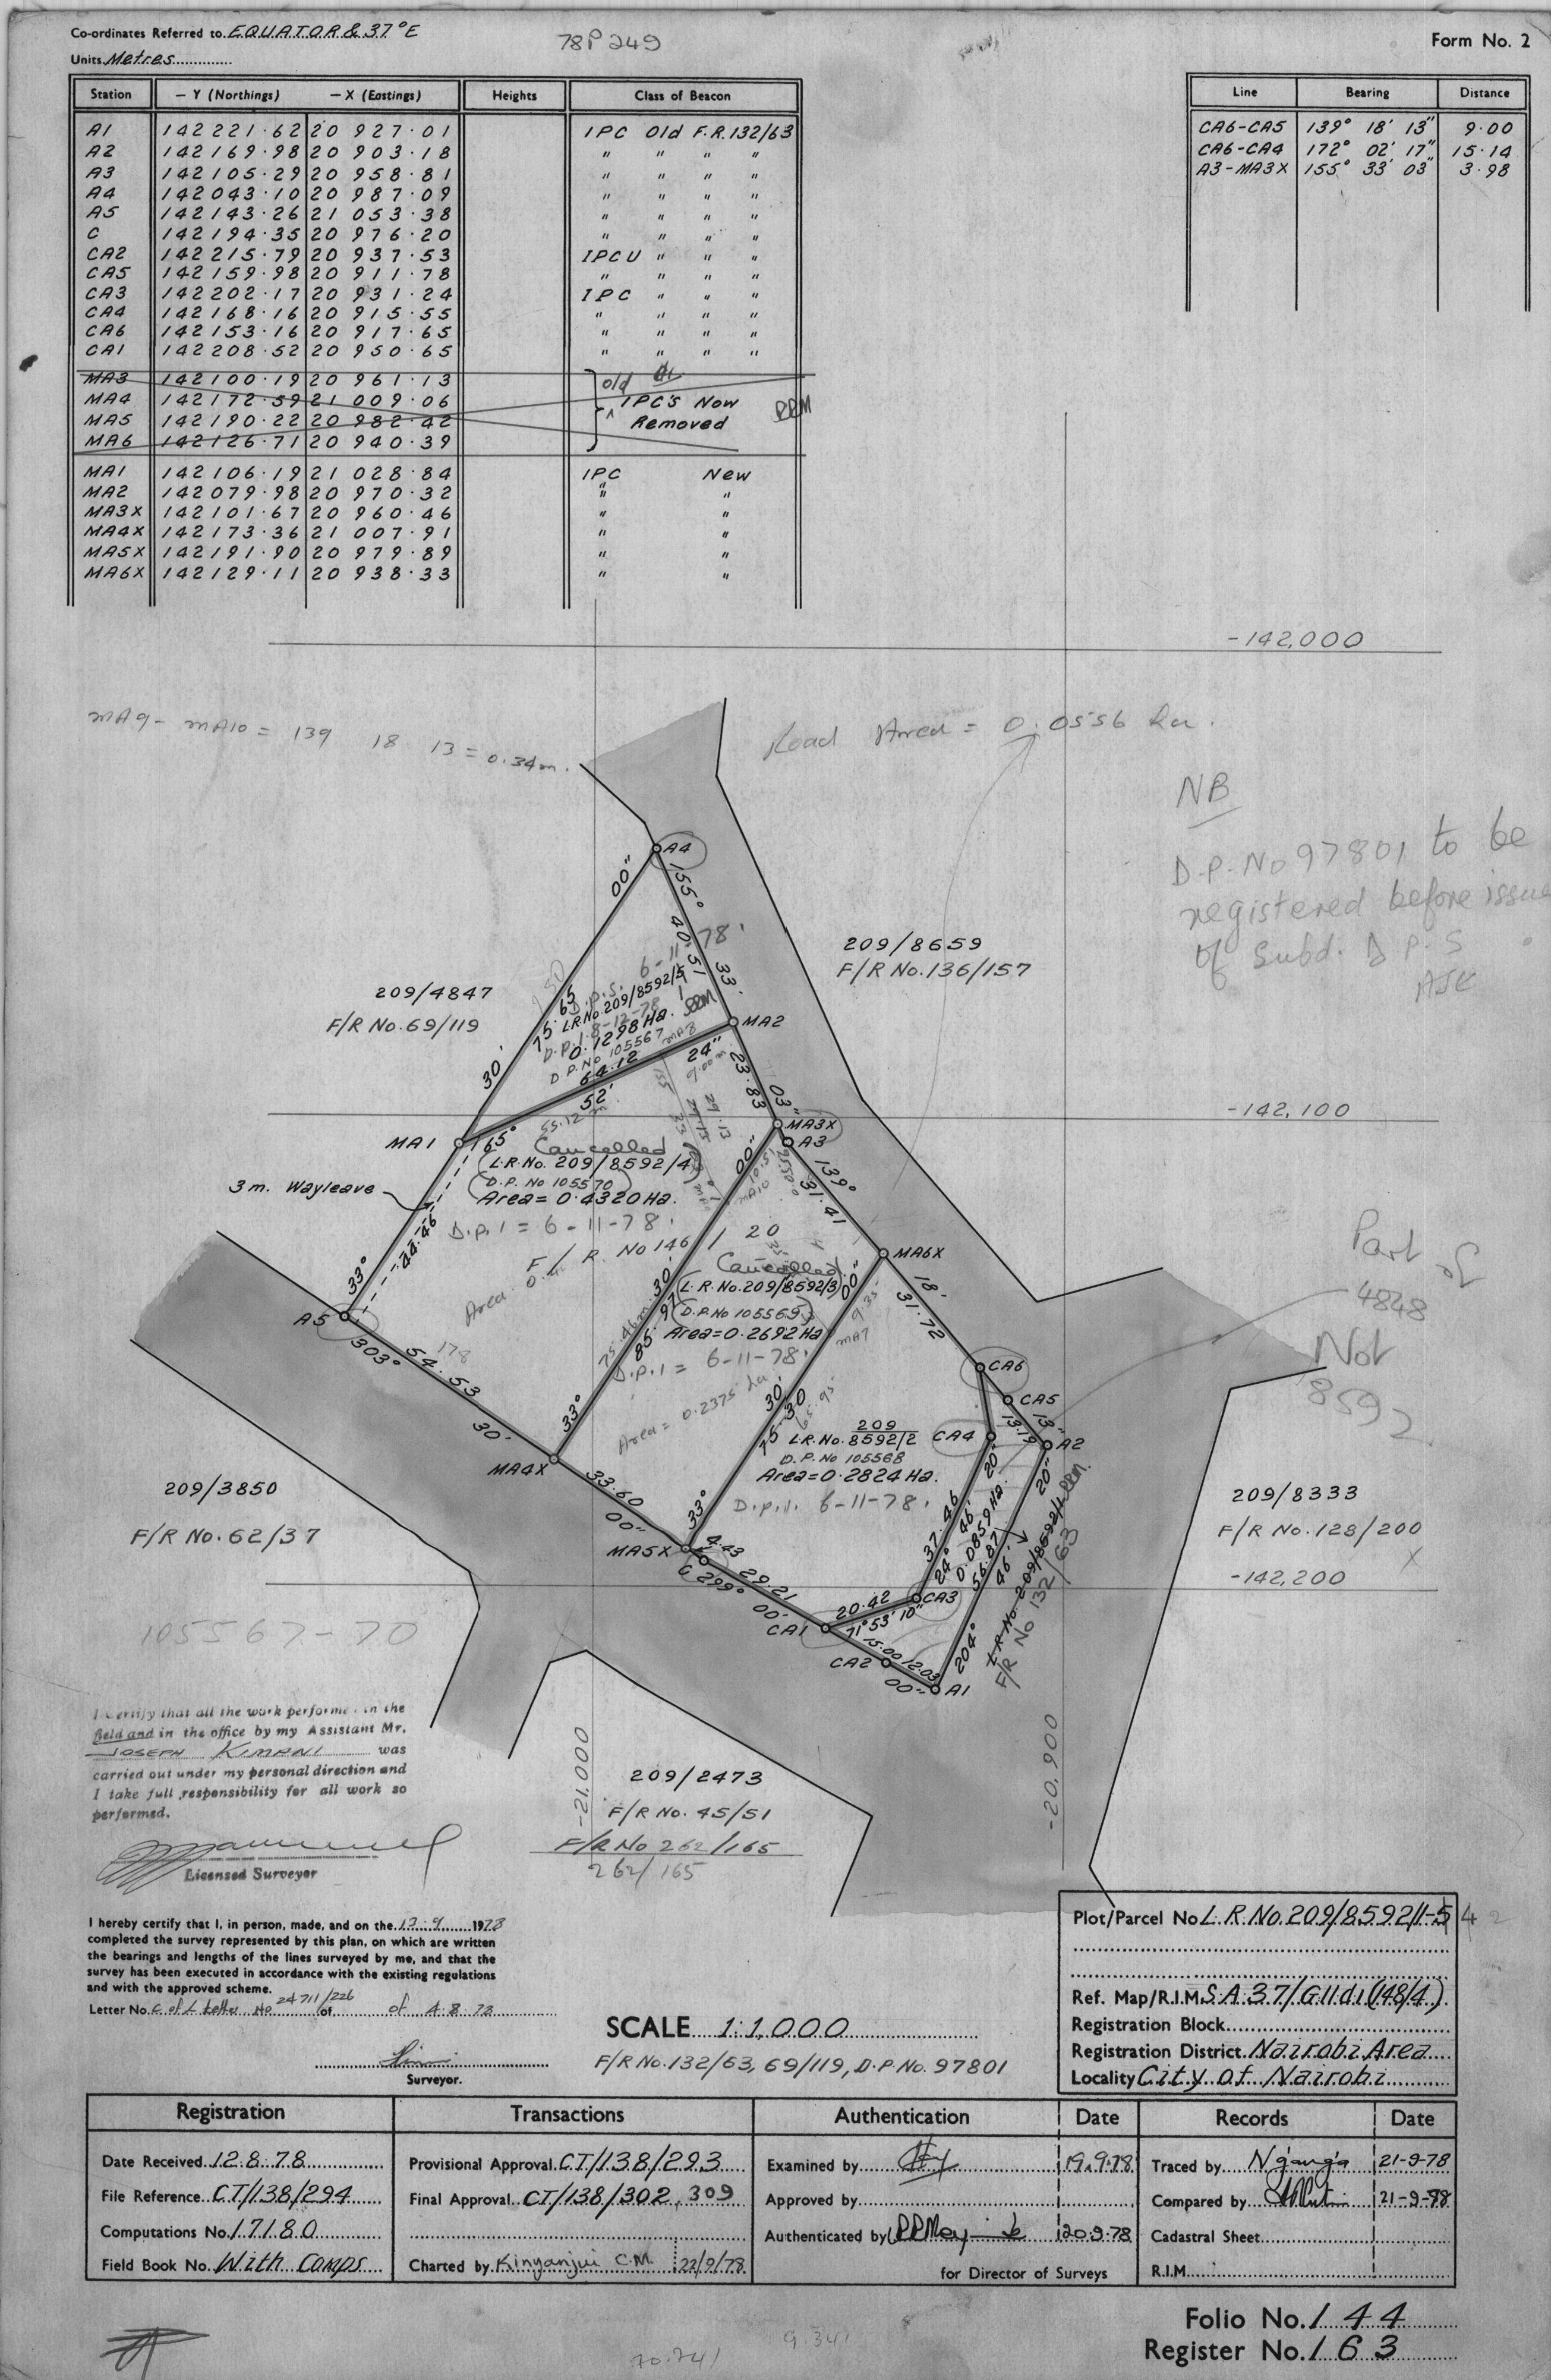 Co-ordinates Referred to EQUATOR & 37°E
Units Metres
78P249
Form No. 2
Station — Y (Northings) — X (Eastings) Heights Class of Beacon
A1 142 221·62 20 927·01 IPC Old F.R.132/63
A2 142 169·98 20 903·18 " " " "
A3 142 105·29 20 958·81 " " " "
A4 142 043·10 20 987·09 " " " "
A5 142 143·26 21 053·38 " " " "
C 142 194·35 20 976·20 " " " "
CA2 142 215·79 20 937·53 IPCU " " "
CA5 142 159·98 20 911·78 " " " "
CA3 142 202·17 20 931·24 IPC " " "
CA4 142 168·16 20 915·55 " " " "
CA6 142 153·16 20 917·65 " " " "
CA1 142 208·52 20 950·65 " " " "
MA3 142 100·19 20 961·13 old
MA4 142 172·59 21 009·06 IPC's Now
MA5 142 190·22 20 982·42 Removed
MA6 142 126·71 20 940·39
MA1 142 106·19 21 028·84 IPC New
MA2 142 079·98 20 970·32 " "
MA3X 142 101·67 20 960·46 " "
MA4X 142 173·36 21 007·91 " "
MA5X 142 191·90 20 979·89 " "
MA6X 142 129·11 20 938·33 " "
Line Bearing Distance
CA6-CA5 139° 18' 13" 9·00
CA6-CA4 172° 02' 17" 15·14
A3-MA3X 155° 33' 03" 3·98
-142,000
MA9- MA10 = 139 18 13 = 0.34m.
Road Area = 0.0556 ha.
NB
D.P. No 97801 to be
registered before issue
of Subd. D P.S
A4
00"
155°
40·51
33'
209/8659
F/R No.136/157
209/4847
F/R No.69/119
D.p.s. 6-11-78'
L.R.No.209/8592/5
D.p.1.8-12-78
0.1298 Ha.
D.P.No 105567
75·65
30'
MA2
64·12
52'
24"
23·83
03"
55.12 m
-142,100
MA1
65°
MA3X
A3
Cancelled
(L.R.No. 209/8592/4)
(D.P. No 105570)
Area= 0·4320 Ha.
D.p.1 = 6-11-78'
F/R No 146/120
3 m. Wayleave
44·46
33°
A5
303°
54·53
30'
00"
139°
31·41
MA6X
18'
31·72
Cancelled
(L.R.No.209/8592/3)
(D.P.No 105569)
Area=0·2692 Ha
D.p.1 = 6-11-78'
Area = 0.2375 ha
75.46m
85·97
30'
33°
00"
75·30
30'
33°
MA4X
33·60
00"
MA5X
CA6
CA5
13"
13·19
CA4
A2
209
L.R.No. 8592/2
D.P. No 105568
Area=0·2824 Ha.
D.p.1. 6-11-78'
Part of
4848
Not
8592
209/3850
F/R No. 62/37
209/8333
F/R No.128/200
-142,200
4·43
C 299°
29·21
00'
CA1
20·42
71°53' 10"
CA3
37·46
24° 46' 20"
0.0859 Ha.
56·87
204° 46' 20"
L.R.No. 209/8592/1
F/R No 132/63
15·00
12·03
CA2
00"
A1
105567-70
I certify that all the work performed in the
field and in the office by my Assistant Mr.
JOSEPH KIMANI was
carried out under my personal direction and
I take full responsibility for all work so
performed.
Licensed Surveyor
-21,000
-20,900
209/2473
F/R No. 45/51
F/R No 262/165
262/165
I hereby certify that I, in person, made, and on the 13.9 1978
completed the survey represented by this plan, on which are written
the bearings and lengths of the lines surveyed by me, and that the
survey has been executed in accordance with the existing regulations
and with the approved scheme.
Letter No. C of L Letter No 24711/226 of 4.8.78
Surveyor.
SCALE 1:1,000
F/R No.132/63, 69/119, D.P. No. 97801
Plot/Parcel No. L.R.No.209/8592/1-5 4
Ref. Map/R.I.M. S.A.37/G11d1(148/4)
Registration Block
Registration District Nairobi Area
Locality City of Nairobi
Registration Transactions Authentication Date Records Date
Date Received 12.8.78 Provisional Approval CT/138/293 Examined by 19.9.78 Traced by Ng'ang'a 21-9-78
File Reference CT/138/294 Final Approval CT/138/302, 309 Approved by Compared by 21-9-78
Computations No. 17180 Authenticated by 20.9.78 Cadastral Sheet
Field Book No. With Comps Charted by Kinyanjui C.M. 22/9/78 for Director of Surveys R.I.M.
Folio No. 144
Register No. 163
70.741
9.341